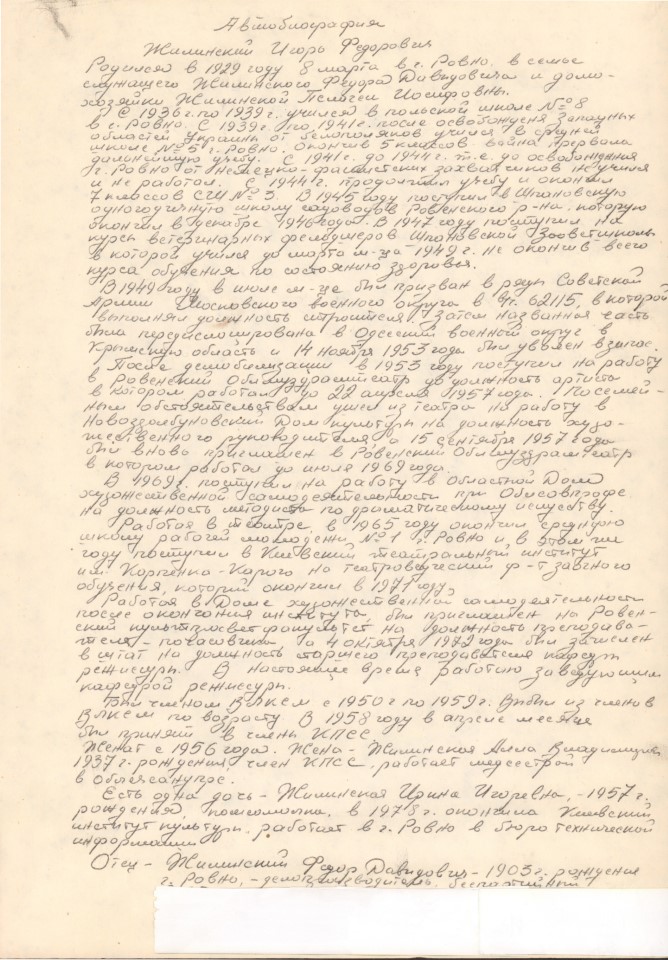 Автобиография
Жилинский Игорь Федорович
Родился в 1929 году 8 марта в г. Ровно в семье
служащего Жилинского Федора Давидовича и домо-
хозяйки Жилинской Пелагеи Иосифовны.
С 1936 г. по 1939 г. учился в польской школе № 8
в г. Ровно. С 1939 г. по 1941 г. после освобождения Западных
областей Украины от белополяков учился в средней
школе № 5 г. Ровно. Окончив 5 классов война прервала
дальнейшую учебу. С 1941 г. до 1944 г. т.е. до освобождения
г. Ровно от немецко-фашистских захватчиков не учился
и не работал. С 1944 г. продолжил учебу и окончил
7 классов СШ № 3. В 1945 году поступил в Шпановскую
одногодичную школу садоводов Ровенского р-на, которую
окончил в декабре 1946 года. В 1947 году поступил на
курсы ветеринарных фельдшеров Шпановской Зооветшколы
в которой учился до марта м-ца 1949 г. не окончив всего
курса обучения по состоянию здоровья.
В 1949 году в июле м-це был призван в ряды Советской
Армии Московского военного округа в в/ч. 62115, в которой
выполнял должность строителя. Затем названная часть
была передислоцирована в Одесский военный округ в
Крымскую область и 14 ноября 1953 года был уволен в запас.
После демобилизации в 1953 году поступил на работу
в Ровенский Облмуздрамтеатр на должность артиста
в котором работал до 22 апреля 1957 года. По семей-
ным обстоятельствам ушел из театра на работу в
Новоздолбуновский Дом культуры на должность худо-
жественного руководителя, а 15 сентября 1957 года
был вновь приглашен в Ровенский Облмуздрамтеатр
в котором работал до июля 1969 года.
В 1969 г. поступил на работу в областной Дом
художественной самодеятельности при Облсовпрофе
на должность методиста по драматическому искуству.
Работая в театре, в 1965 году окончил среднюю
школу рабочей молодежи № 1 г. Ровно и в этом же
году поступил в Киевский театральный институт
им. Карпенка-Карого на театроведческий ф-т заочного
обучения, который окончил в 1971 году.
Работая в Доме художественной самодеятельности
после окончания института был приглашен на Ровен-
ский культпросветфакультет на должность преподава-
теля-почасовика, а 4 октября 1972 года был зачислен
в штат на должность старшего преподавателя кафедры
режиссуры. В настоящее время работаю заведующим
кафедрой режиссуры.
Был членом ВЛКСМ с 1950 г. по 1959 г. Выбыл из членов
ВЛКСМ по возрасту. В 1958 году в апреле месяце
был принят в члены КПСС.
Женат с 1956 года. Жена - Жилинская Алла Владимировна
1937 г. рождения, член КПСС, работает медсестрой
в
Есть одна дочь - Жилинская Ирина Игоревна, - 1957 г.
рождения, комсомолка, в 1978 г. окончила Киевский
институт культуры, работает в г. Ровно в бюро технической
информации
Отец - Жилинский Федор Давидович - 1903 г. рождения
г. Ровно, - делопроизводитель, беспартийный